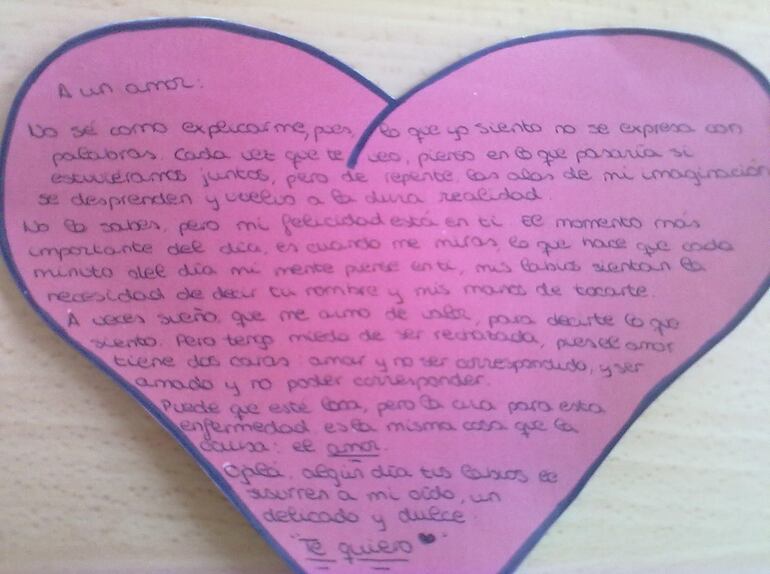 A un amor:
No sé como explicarme, pues, lo que yo siento no se expresa con
palabras. Cada vez que te veo, pienso en lo que pasaría si
estuviéramos juntos, pero de repente, las alas de mi imaginación
se desprenden y vuelvo a la dura realidad.
No lo sabes, pero mi felicidad está en ti. El momento más
importante del día, es cuando me miras, lo que hace que cada
minuto del día mi mente piense en ti, mis labios sientan la
necesidad de decir tu nombre y mis manos de tocarte.
A veces sueño que me armo de valor, para decirte lo que
siento. Pero tengo miedo de ser rechazada, pues el amor
tiene dos caras: amar y no ser correspondido, y ser
amado y no poder corresponder.
Puede que esté loca, pero la cura para esta
enfermedad es la misma cosa que la
causa: el amor.
Ojalá, algún día tus labios le
susurren a mi oído, un
delicado y dulce:
"Te quiero ♥"